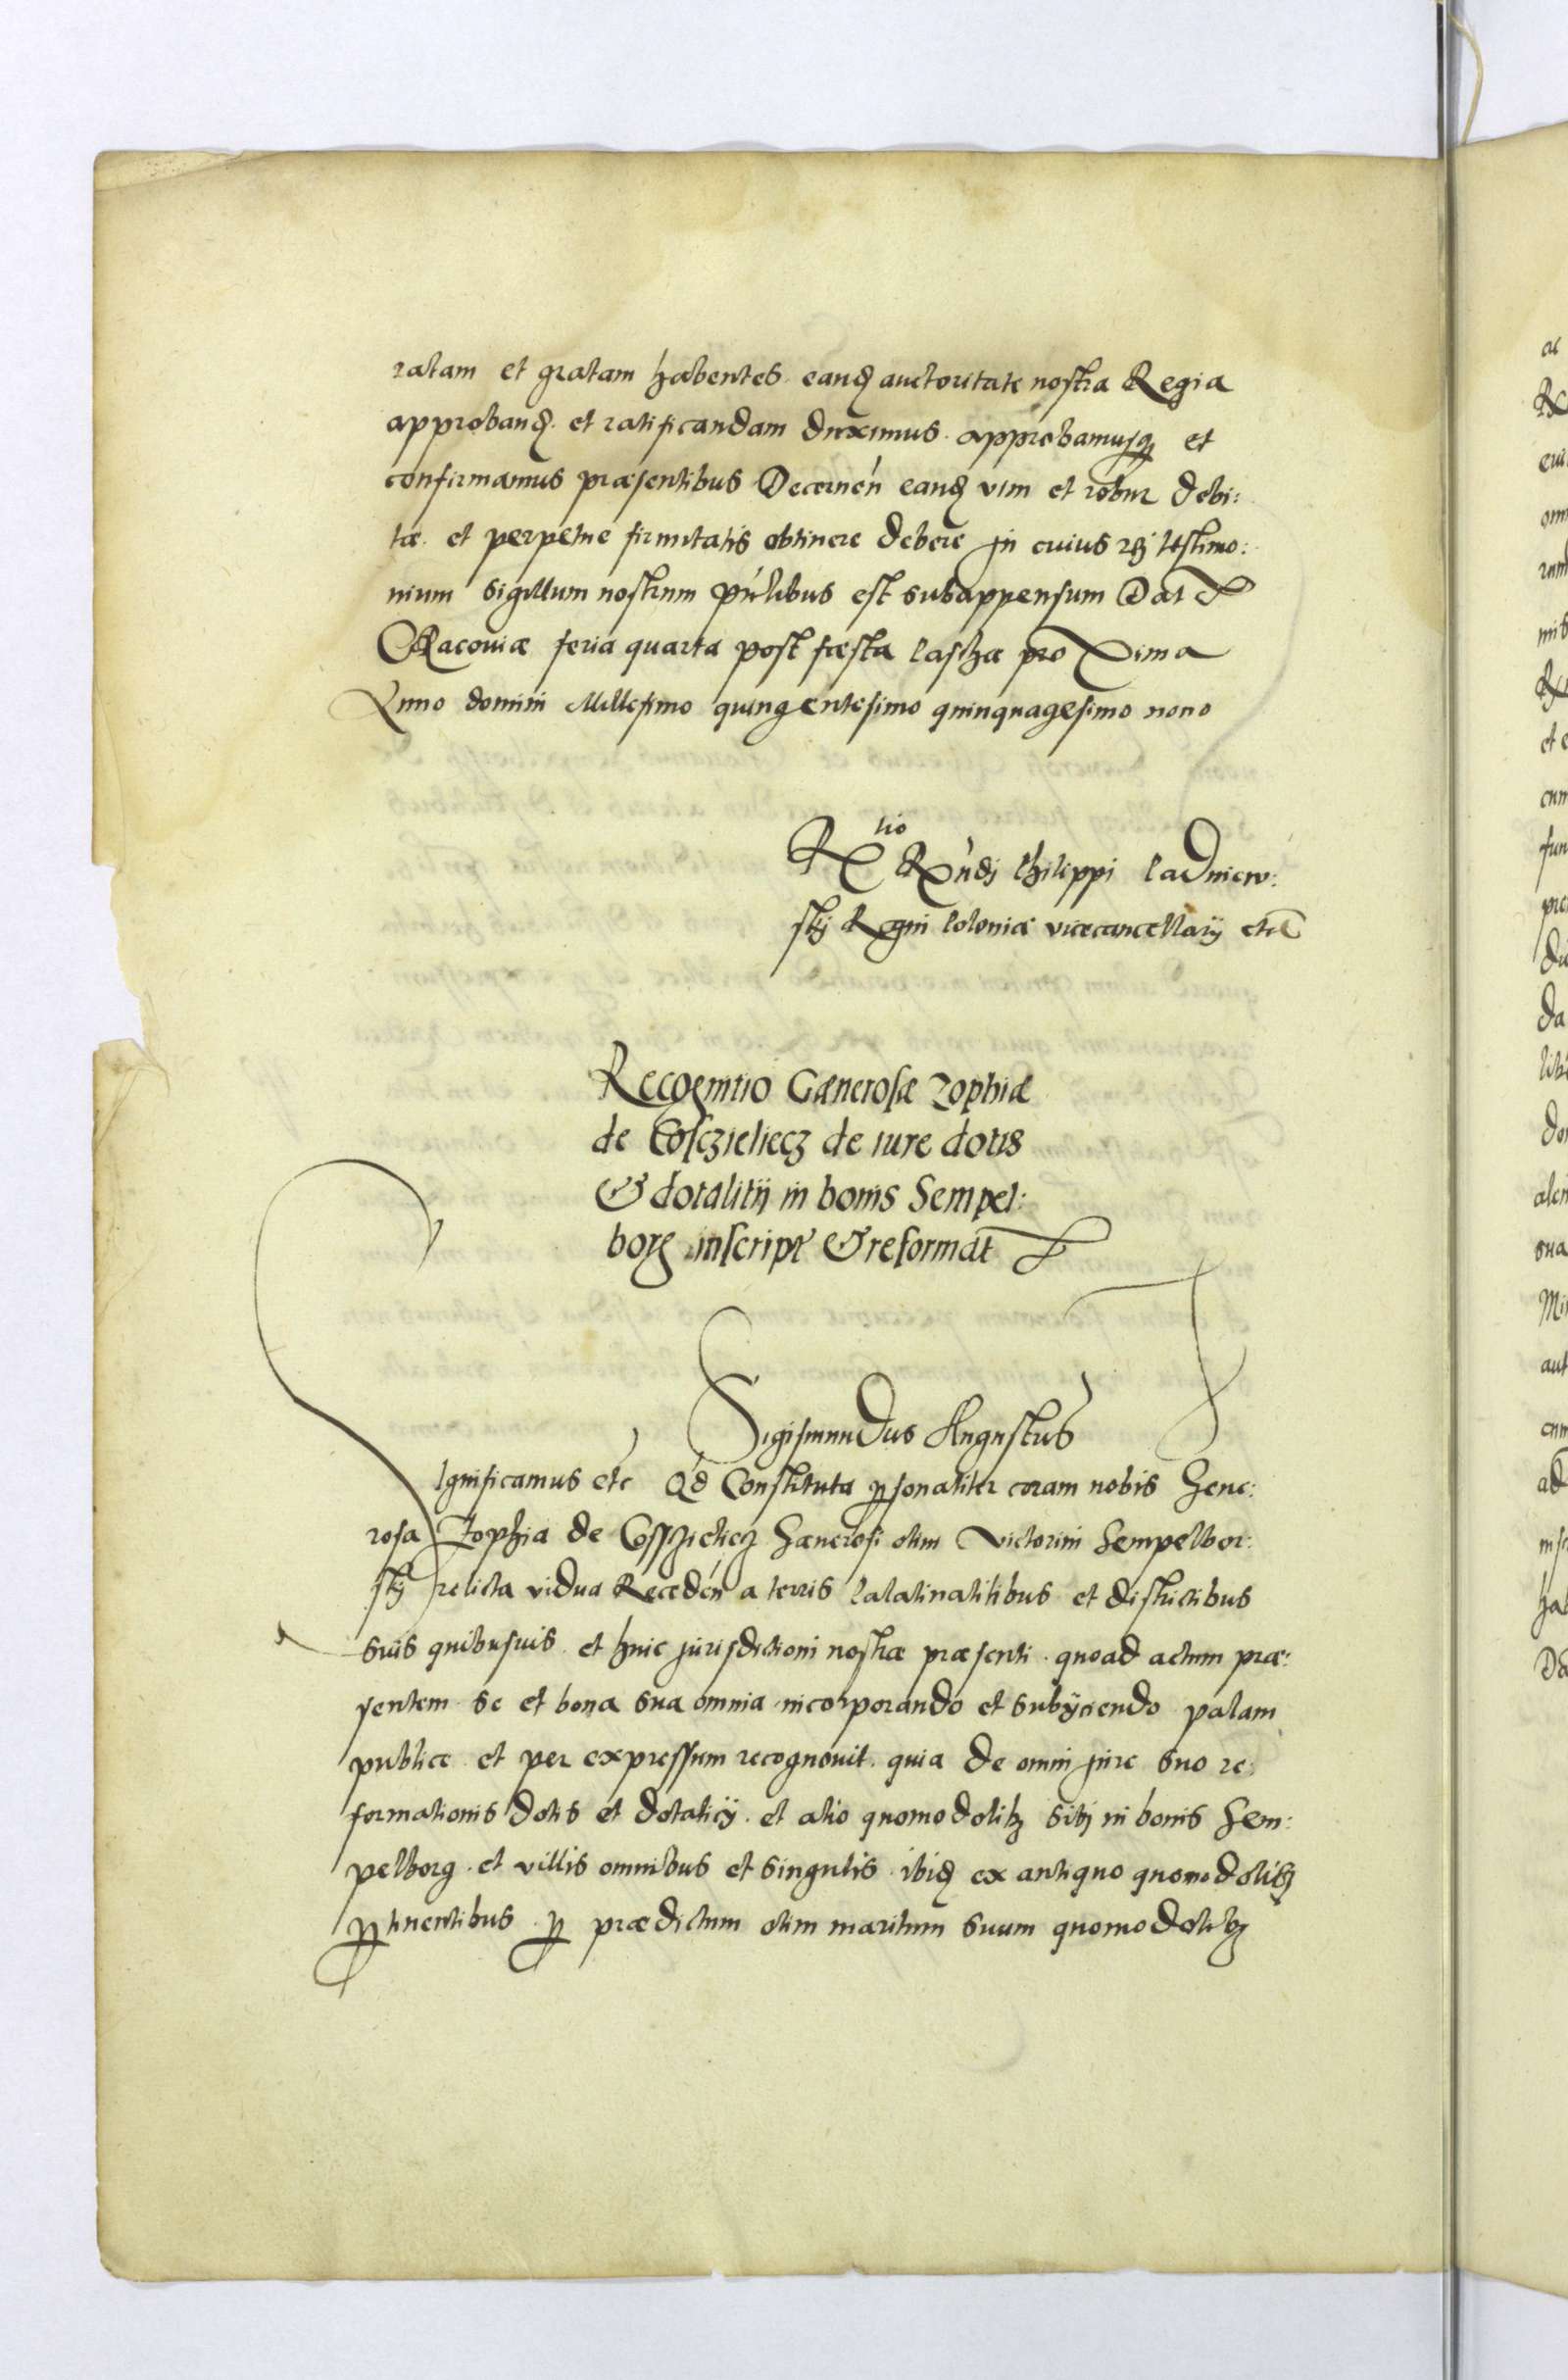 ratam et gratam habentes eandꝫ auctoritate nostra Regia
approbandꝫ et ratificandam duximus approbamusqꝫ et
confirmamus præsentibus Decernen̄ eandꝫ vim et robur debi:
tæ et perpetue firmitatis obtinere debere jn cuius rei testimo:
nium sigillum nostrum pn̄tibus est subappensum Dat
Cracoviæ feria quarta post fæsta Paschæ proxima
Anno domini Millesimo quingentesimo quinquagesimo nono
Rtio Rn̄di Philippi Padniew:
skj Regni Poloniæ vicecancellarij etc
Recognitio Gænerosæ Zophiæ
de Cosczieliecz de iure dotis
& dotalitij in bonis Sempel:
borg inscript & reformat
Sigismundus Augustus
Ignificamus etc Qd Constituta ꝑsonaliter coram nobis Gene:
rosa Zophia de Cossczieliecz Gænerosi olim Victorini Sempelbor:
skj relicta vidua Recæden̄ a terris Palatinatibus et districtibus
suis quibusuis et huic jurisdictioni nostræ præsenti quoad actum præ:
sentem se et bona sua omnia incorporando et subijciendo palam
publice et per expressum recognouit quia de omni jure suo re:
formationis dotis et dotalicij et alio quomodolibꝫ sibj in bonis Sem:
pelborg et villis omnibus et singulis ibidꝫ ex antiquo quomodolibꝫ
ꝑtinentibus ꝑ prædictum olim maritum suum quomodolibꝫ